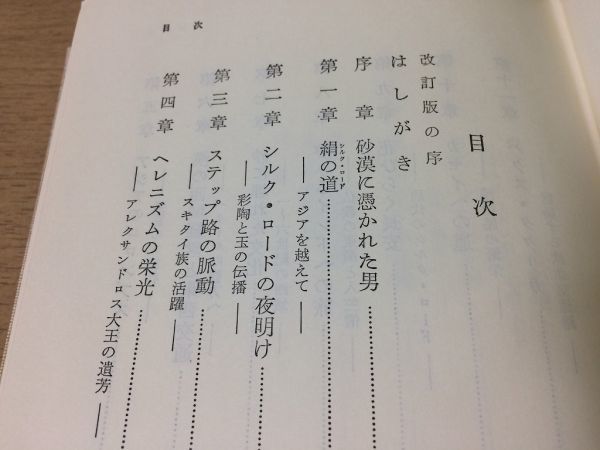 目次
目次
改訂版の序
はしがき
序章 砂漠に憑かれた男
第一章 絹の道
シルク・ロード
――アジアを越えて――
第二章 シルク・ロードの夜明け
――彩陶と玉の伝播――
第三章 ステップ路の脈動
――スキタイ族の活躍――
第四章 ヘレニズムの栄光
――アレクサンドロス大王の遺芳――